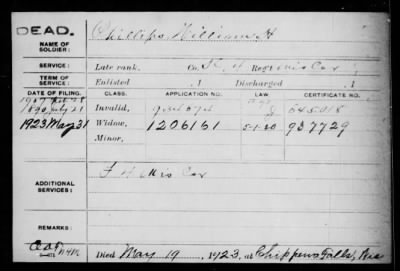 DEAD.
Phillips William H
NAME OF SOLDIER:
SERVICE:
Late rank, Co. Reg't Wis Cav
TERM OF SERVICE:
Enlisted , 1 Discharged , 1
DATE OF FILING. CLASS. APPLICATION NO. LAW. CERTIFICATE NO.
1890 July 21 Invalid,
1923 May 31 Widow, 1206161 5-1-20 937729
Minor,
ADDITIONAL SERVICES:
F 4 Wis Cav
REMARKS:
Died May 19, 1923, at Chippewa Falls, Wis